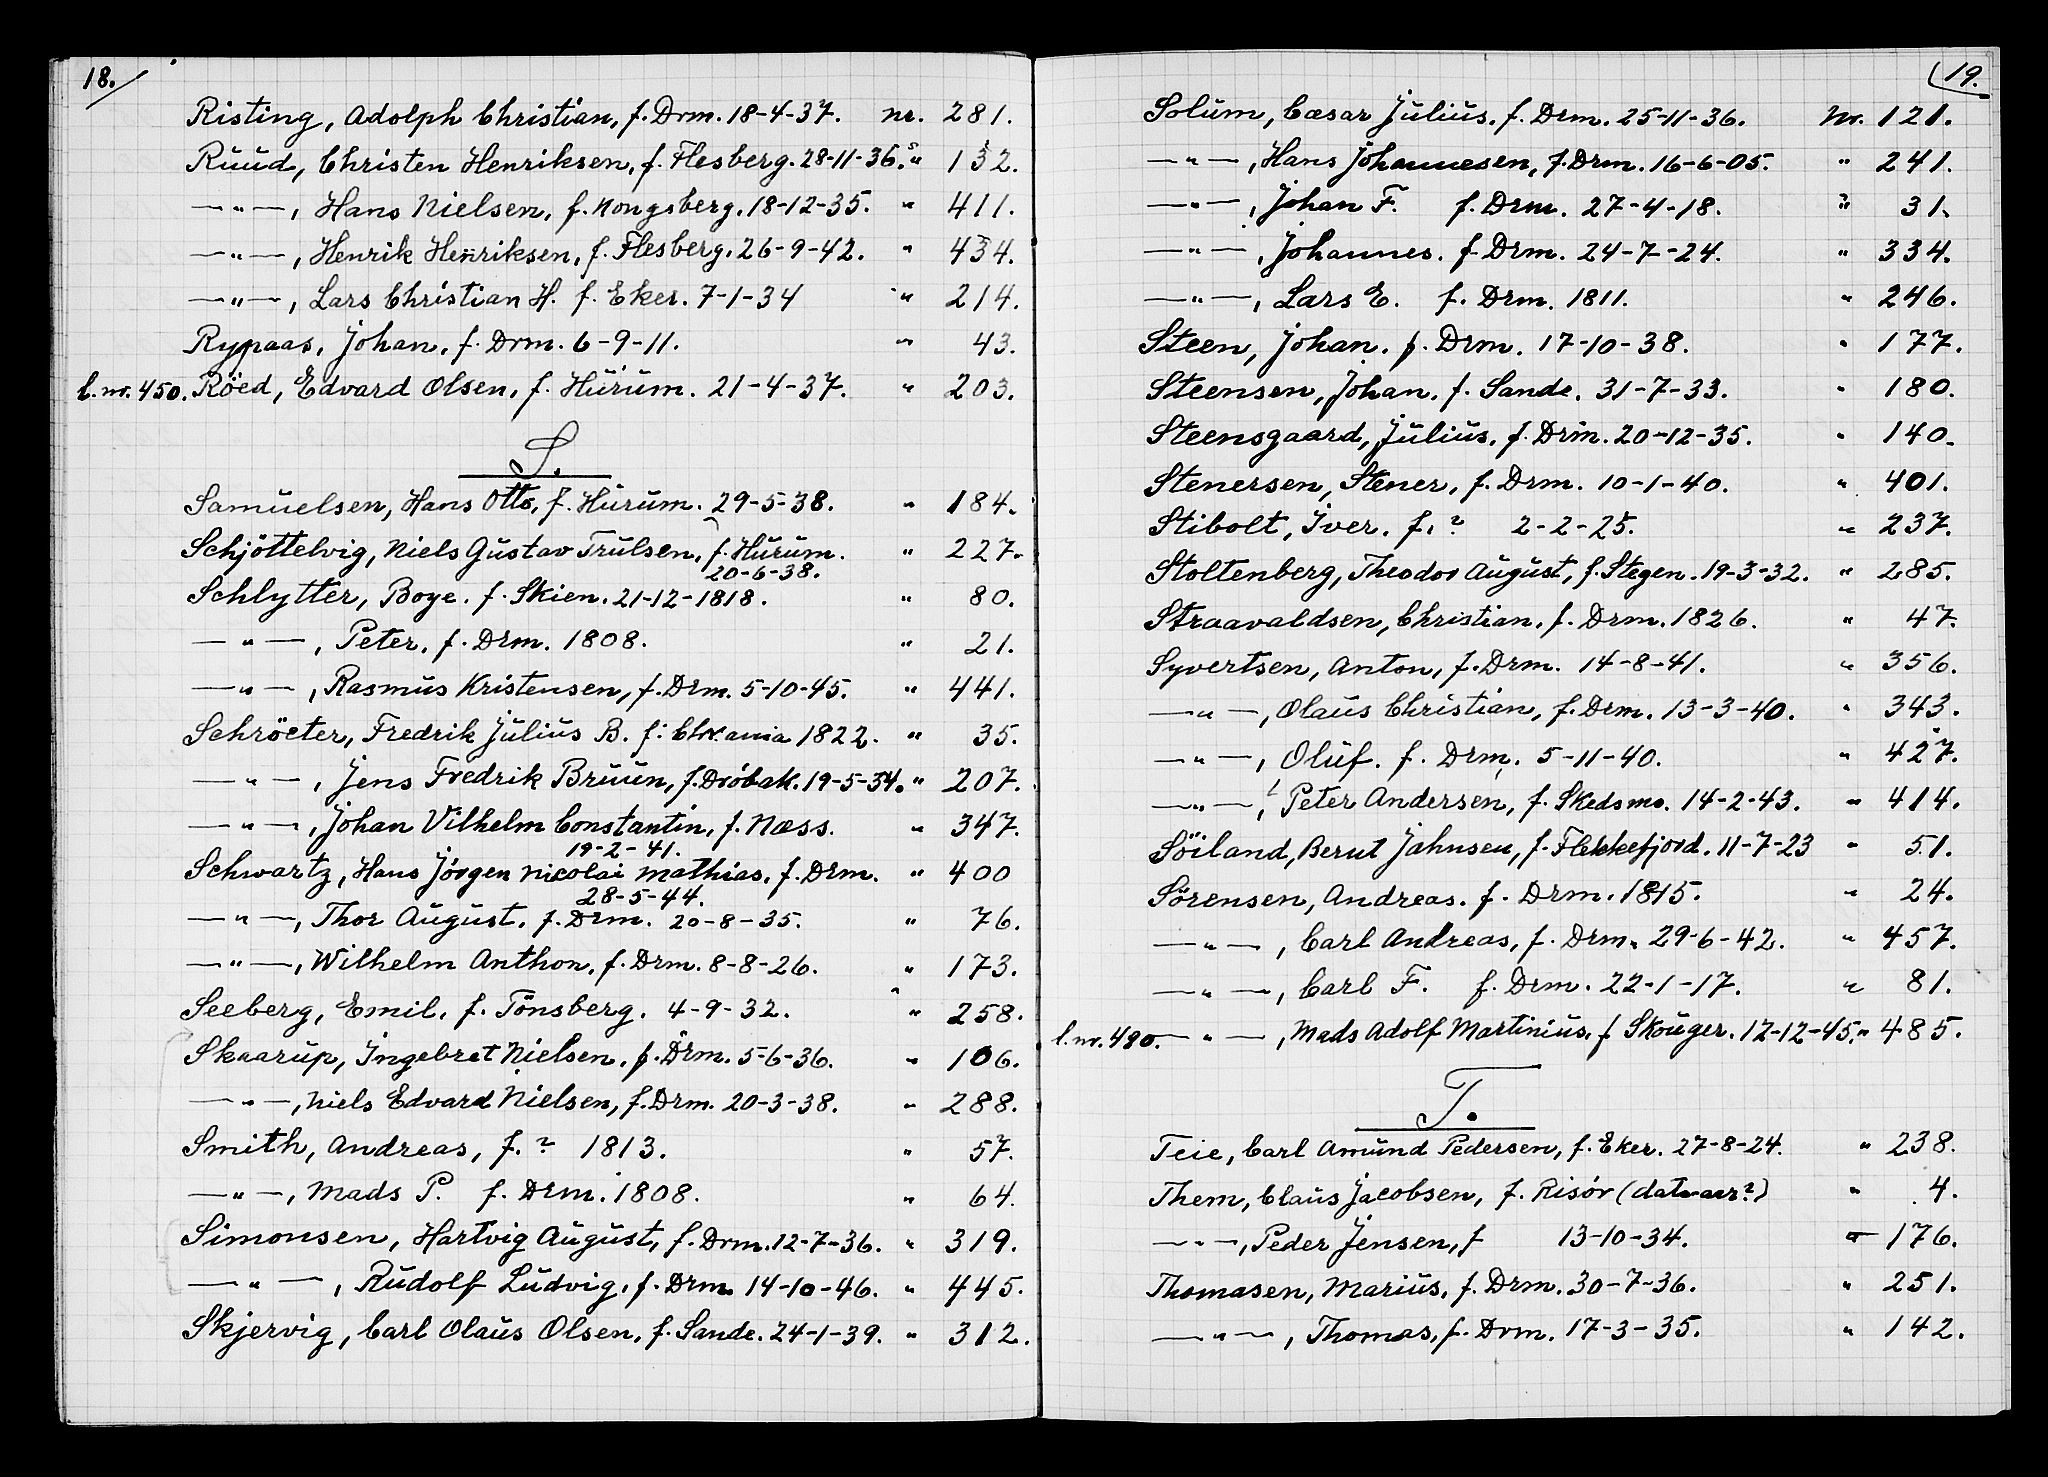 18.
Risting, Adolph Christian, f. Drm. 18-4-37. nr. 281.
Ruud, Christen Henriksen, f. Flesberg. 28-11-36. " 132.
—"—, Hans Nielsen, f. Kongsberg. 18-12-35. " 411.
—"—, Henrik Henriksen, f. Flesberg. 26-9-42. " 434.
—"—, Lars Christian H. f. Eker. 7-1-34 " 214.
Rypaas, Johan, f. Drm. 6-9-11. " 43.
l. nr. 450. Röed, Edvard Olsen, f. Hurum. 21-4-37. " 203.
S.
Samuelsen, Hans Otto, f. Hurum. 29-5-38. " 184.
Schjöttelvig, Niels Gustav Trulsen, f. Hurum. " 227.
20-6-38.
Schlytter, Boye. f. Skien. 21-12-1818. " 80.
—"—, Peter, f. Drm. 1808. " 21.
—"—, Rasmus Kristensen, f. Drm. 5-10-45. " 441.
Schröeter, Fredrik Julius B. f. Chr.ania 1822. " 35.
—"—, Jens Fredrik Bruun, f. Dróbak. 19-5-34. " 207.
—"—, Johan Vilhelm Constantin, f. Næss. " 347.
19-2-41.
Schwartz, Hans Jórgen Nicolai Mathias, f. Drm. " 400
28-5-44.
—"—, Thor August, f. Drm. 20-8-35. " 76.
—"—, Wilhelm Anthon, f. Drm. 8-8-26. " 173.
Seeberg, Emil, f. Tönsberg. 4-9-32. " 258.
Skaarup, Ingebret Nielsen, f. Drm. 5-6-36. " 106.
—"—, Niels Edvard Nielsen, f. Drm. 20-3-38. " 288.
Smith, Andreas, f. ? 1813. " 57.
—"—, Mads P. f. Drm. 1808. " 64.
Simonsen, Hartvig August, f. Drm. 12-7-36. " 319.
—"—, Rudolf Ludvig, f. Drm 14-10-46. " 445.
Skjervig, Carl Olaus Olsen, f. Sande. 24-1-39. " 312.
19.
Solum, Cæsar Julius, f. Drm. 25-11-36. Nr. 121.
—"—, Hans Johannesen, f. Drm. 16-6-05. " 241.
—"—, Johan F. f. Drm. 27-4-18. " 31.
—"—, Johannes. f. Drm. 24-7-24. " 334.
—"—, Lars E. f. Drm. 1811. " 246.
Steen, Johan. f. Drm. 17-10-38. " 177.
Steensen, Johan, f. Sande. 31-7-33. " 180.
Steensgaard, Julius, f. Drm. 20-12-35. " 140.
Stenersen, Stener, f. Drm. 10-1-40. " 401.
Stibolt, Iver. f. ? 2-2-25. " 237.
Stoltenberg, Theodor August, f. Stegen. 19-3-32. " 285.
Straavaldsen, Christian, f. Drm. 1826. " 47.
Syvertsen, Anton, f. Drm. 14-8-41. " 356.
—"—, Olaus Christian, f. Drm. 13-3-40. " 343.
—"—, Oluf. f. Drm. 5-11-40. " 427.
—"—, Peter Andersen, f. Skedsmo. 14-2-43. " 414.
Söiland, Bernt Jahnsen, f. Flekkefjord. 11-7-23 " 51.
Sörensen, Andreas. f. Drm. 1815. " 24.
—"—, Carl Andreas, f. Drm. 29-6-42. " 457.
—"—, Carl F. f. Drm. 22-1-17. " 81.
l. nr. 490. —"—, Mads Adolf Martinius, f. Skouger. 12-12-45. " 485.
T.
Teie, Carl Amund Pedersen, f. Eker. 27-8-24. " 238.
Them, Claus Jacobsen, f. Risör (dat-aar?) " 4.
—"—, Peder Jensen, f 13-10-34. " 176.
Thomasen, Marius, f. Drm. 30-7-36. " 251.
—"—, Thomas, f. Drm. 17-3-35. " 142.